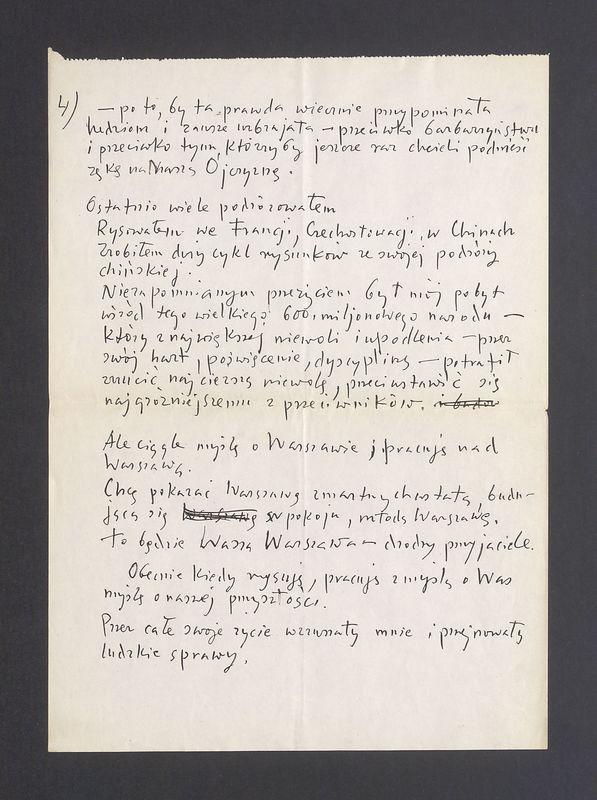 4) — po to, by ta prawda wiecznie przypominała
ludziom i zawsze uzbrajała — przeciwko barbarzyństwu
i przeciwko tym, którzy by jeszcze raz chcieli podnieść
rękę na Naszą Ojczyznę.
Ostatnio wiele podróżowałem
Rysowałem we Francji, Czechosłowacji, w Chinach
Zrobiłem duży cykl rysunków ze swojej podróży
chińskiej.
Niezapomnianym przeżyciem był mój pobyt
wśród tego wielkiego 600 miljonowego narodu —
który z największej niewoli i upodlenia — przez
swój hart, poświęcenie, dyscyplinę — potrafił
zrzucić najcięższą niewolę, przeciwstawić się
najgroźniejszemu z przeciwników.
Ale ciągle myślę o Warszawie i pracuję nad
Warszawą.
Chcę pokazać Warszawę zmartwychwstałą, budu-
jącą się Warszawę w pokoju, młodą Warszawę.
To będzie Wasza Warszawa — drodzy przyjaciele.
Obecnie kiedy rysuję, pracuję z myślą o Was
myślę o naszej przyszłości.
Przez całe swoje życie wzruszały mnie i przejmowały
ludzkie sprawy.